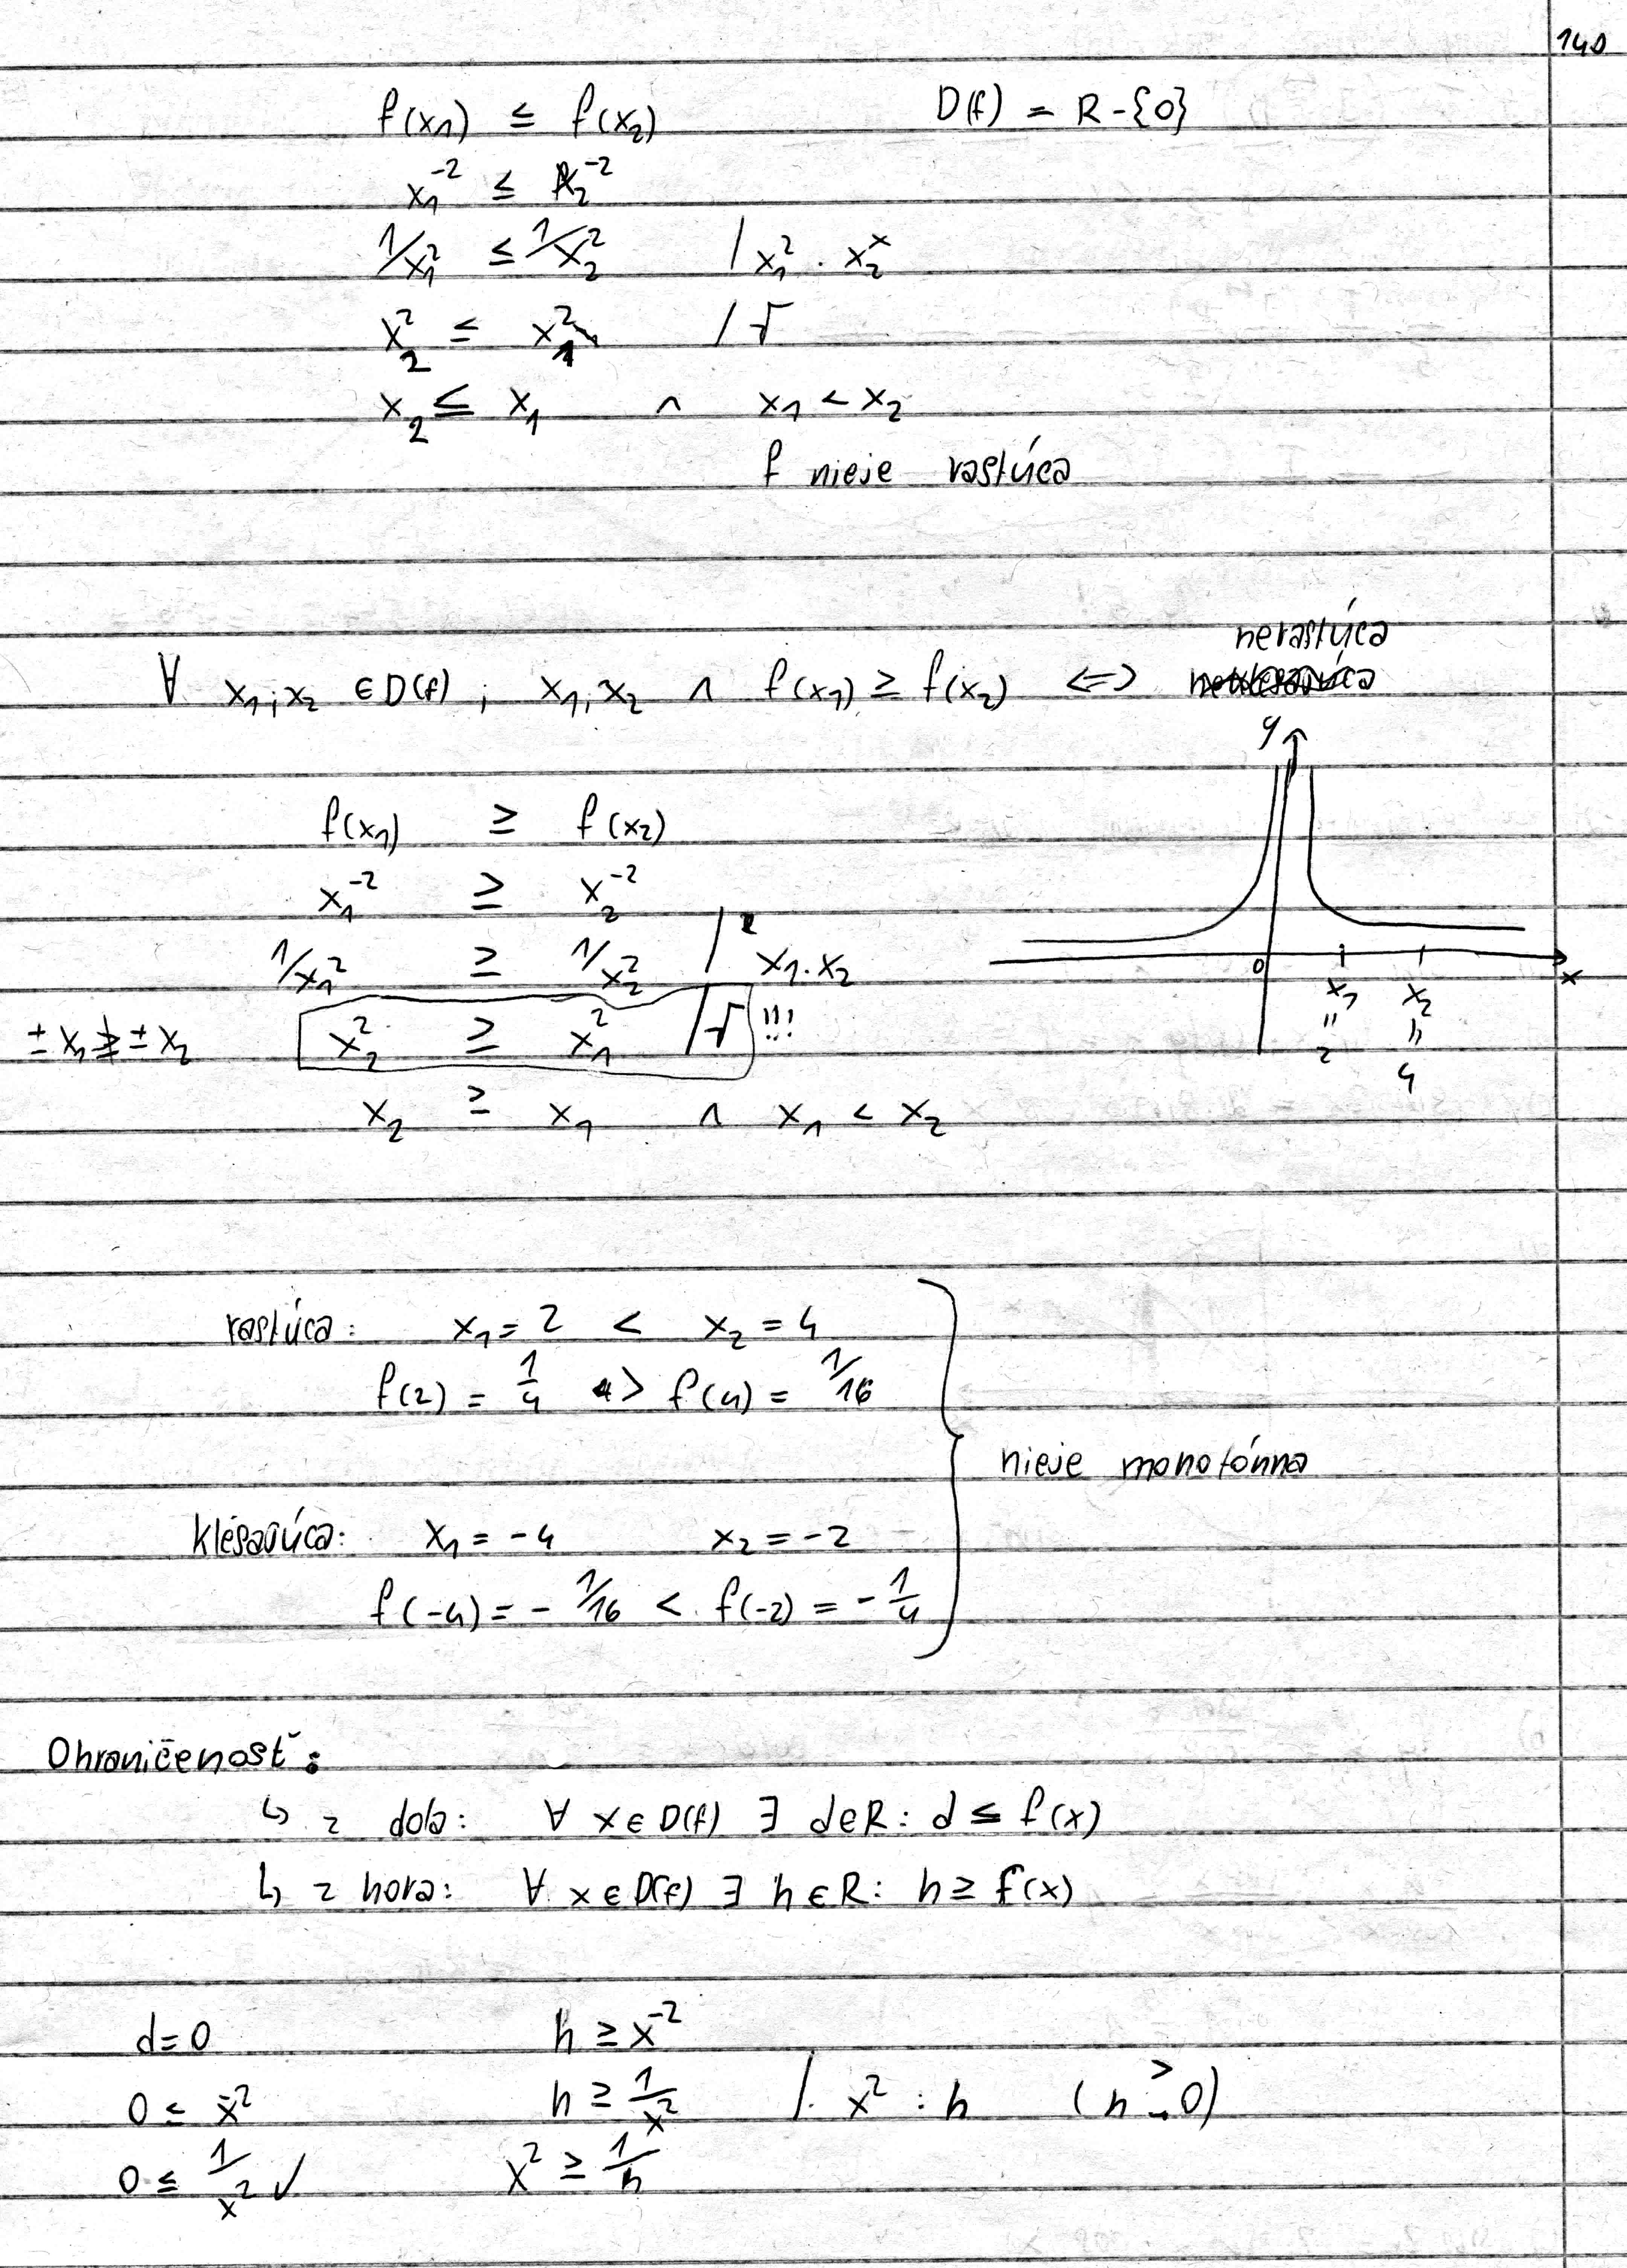 140
f(x₁) ≤ f(x₂) D(f) = R-{0}
x₁⁻² ≤ x₂⁻²
1/x₁² ≤ 1/x₂² / x₁² . x₂ˣ
x₂² ≤ x₁² /√
x₂ ≤ x₁ ∧ x₁ < x₂
f nieje rastúca
nerastúca
∀ x₁;x₂ ∈ D(f) ; x₁,x₂ ∧ f(x₁) ≥ f(x₂) <=>
y
f(x₁) ≥ f(x₂)
x₁⁻² ≥ x₂⁻²
1/x₁² ≥ 1/x₂² /² x₁.x₂
0 x₁ x₂ x
= =
2 4
± x₁ ≱ ± x₂ x₂² ≥ x₁² /√ !!!
x₂ ≥ x₁ ∧ x₁ < x₂
rastúca: x₁ = 2 < x₂ = 4
f(2) = 1/4 > f(4) = 1/16
nieje monotónna
klesajúca: x₁ = -4 x₂ = -2
f(-4) = - 1/16 < f(-2) = - 1/4
Ohraničenosť:
↳ z dola: ∀ x ∈ D(f) ∃ d∈R: d ≤ f(x)
↳ z hora: ∀ x ∈ D(f) ∃ h ∈ R: h ≥ f(x)
d=0 h ≥ x⁻²
0 ≤ x⁻² h ≥ 1/x² /. x² : h (h > 0)
0 ≤ 1/x² ✓ x² ≥ 1/h